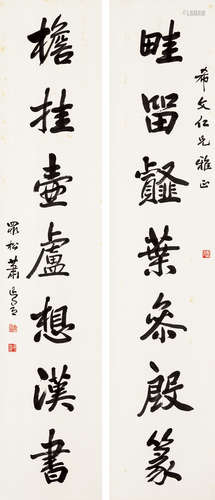 希文仁兄雅正
畦留韰葉叅殷篆
檐挂壺盧想漢書
松蕭